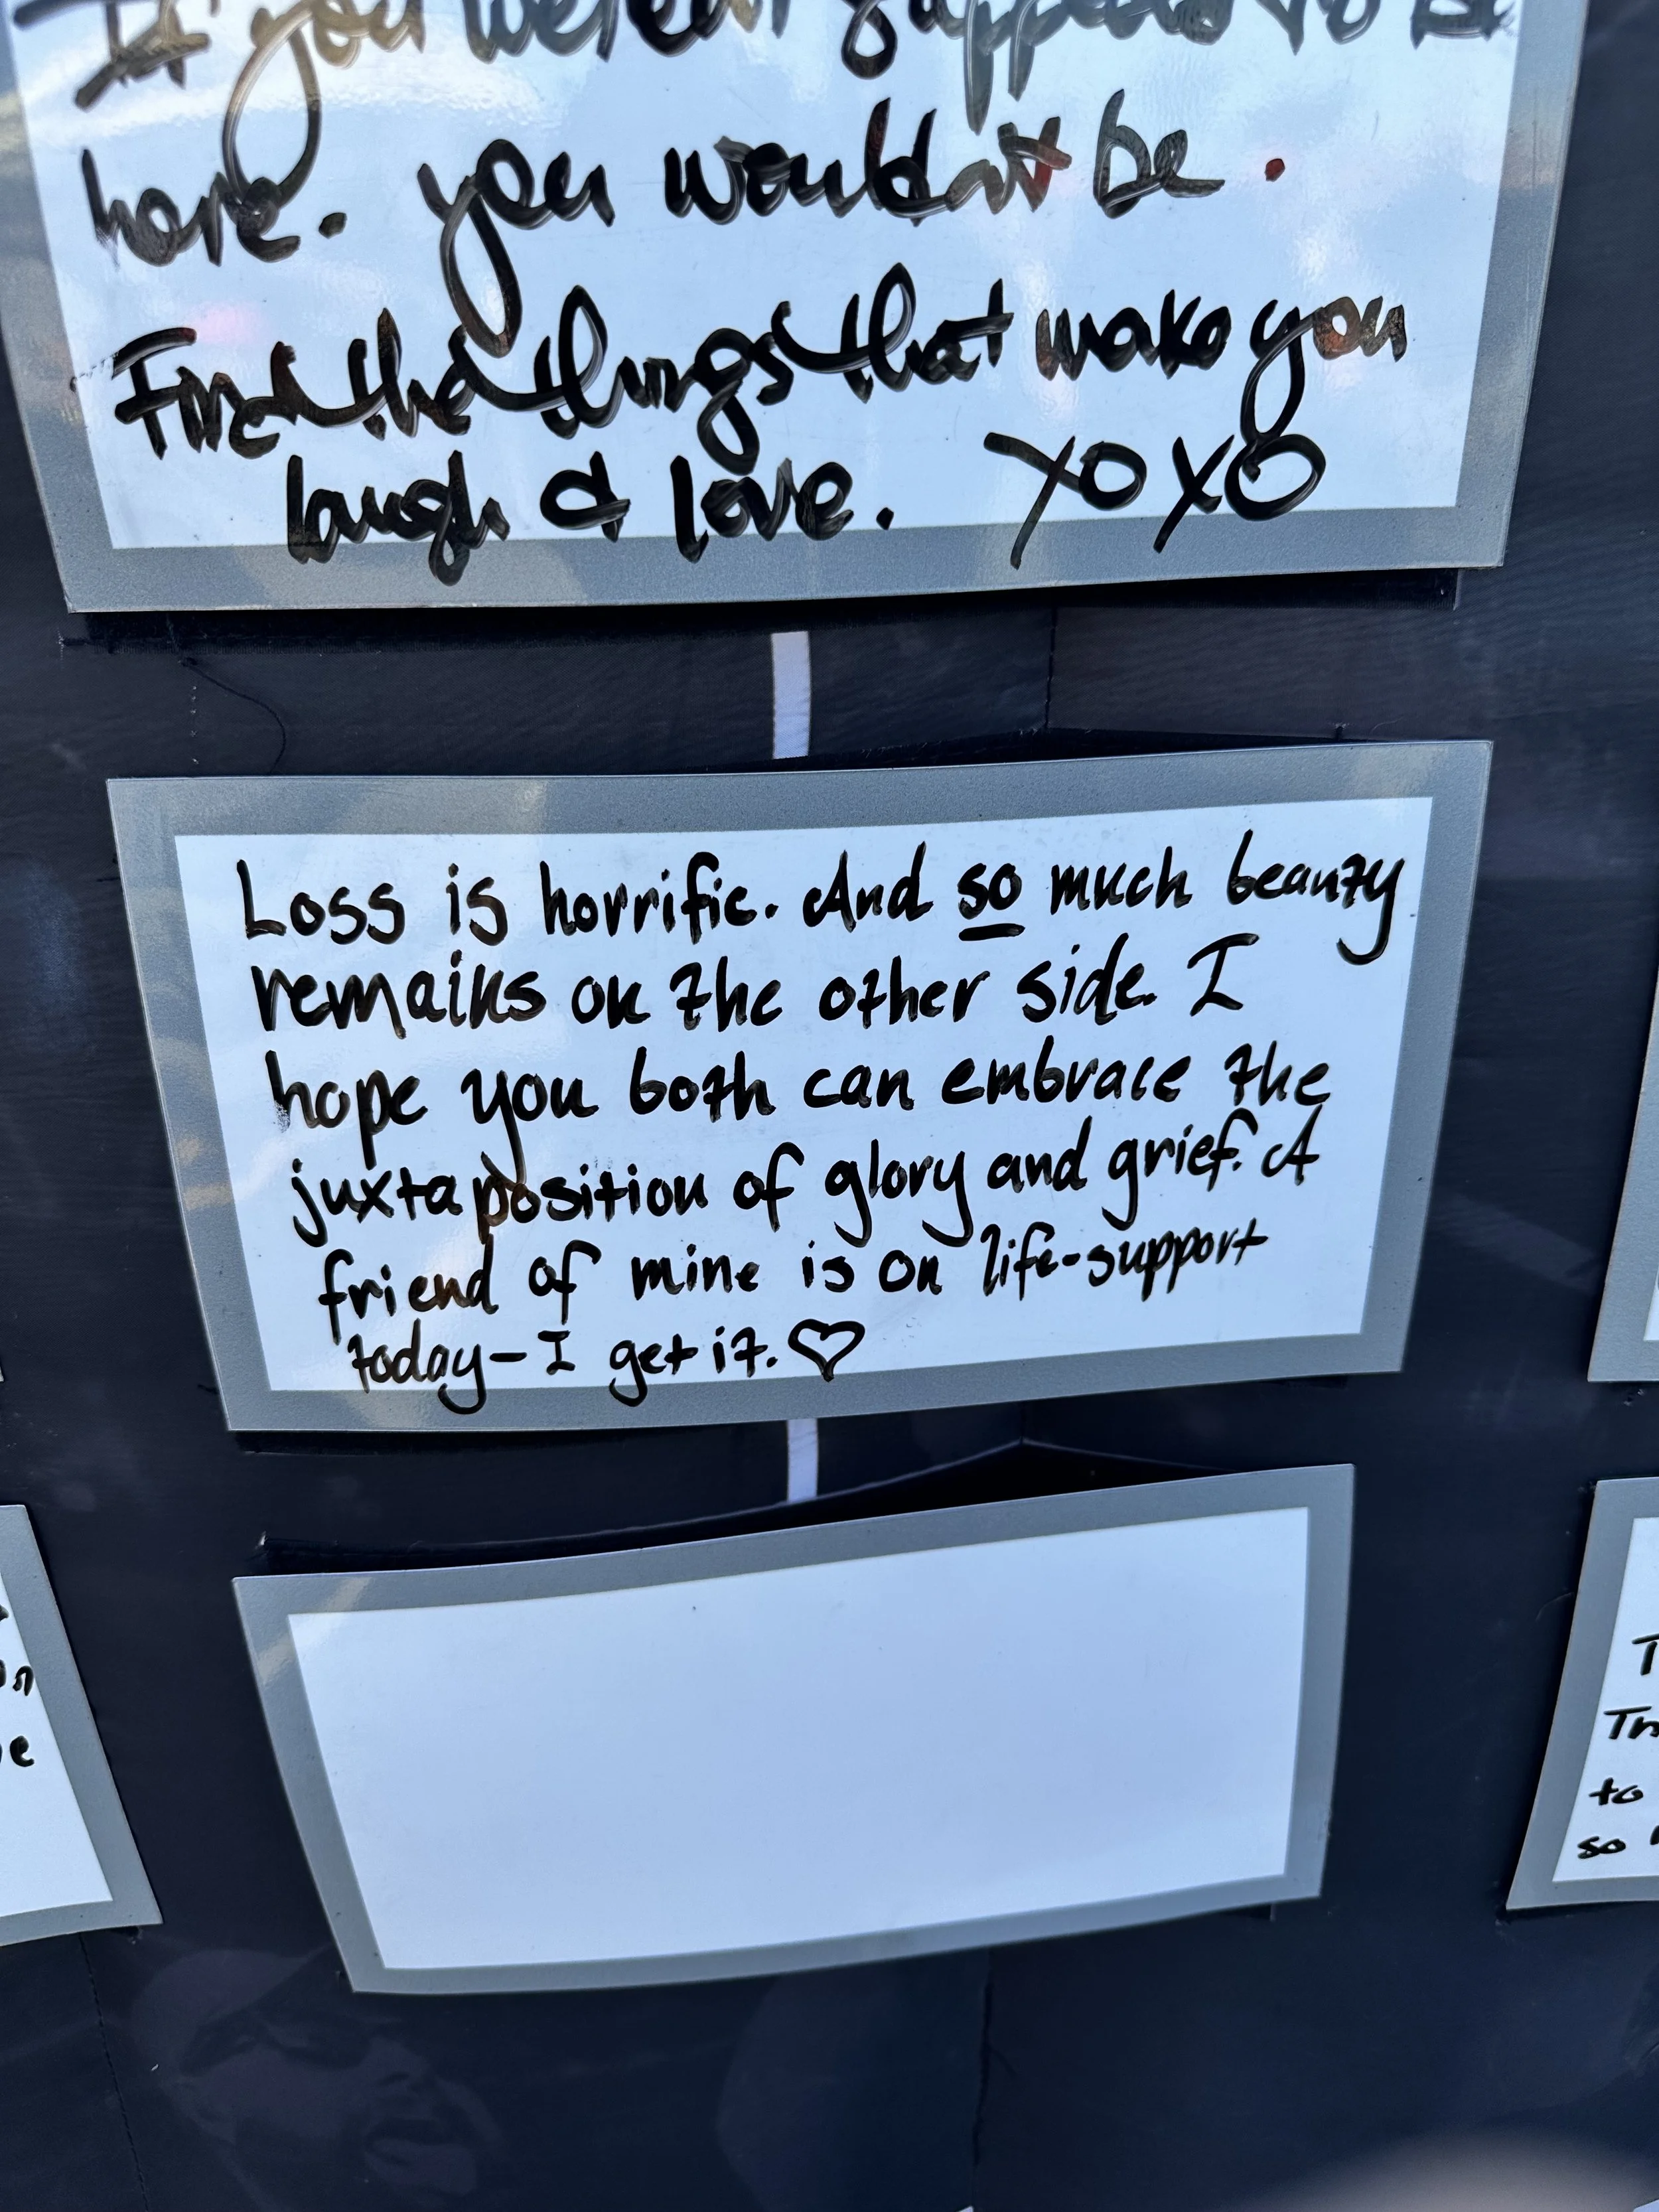 If you weren't supposed to be
here. you wouldn't be.
Find the things that make you
laugh & love. XOXO
Loss is horrific. And so much beauty
remains on the other side. I
hope you both can embrace the
juxtaposition of glory and grief. A
friend of mine is on life-support
today-I get it.♡
to
so